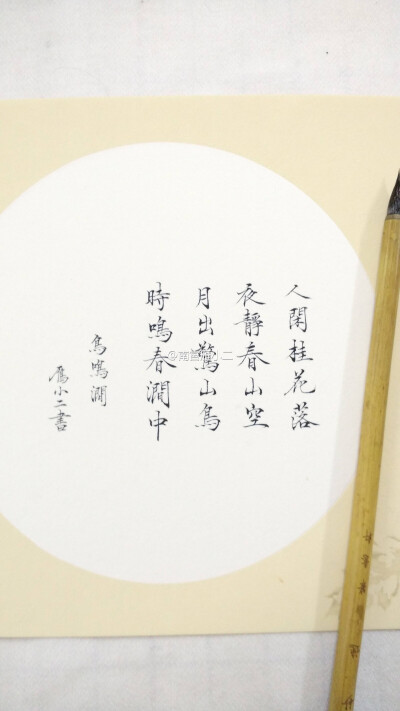 人閑桂花落
夜靜春山空
月出驚山鳥
時鳴春澗中
鳥鳴澗
鴈小二書